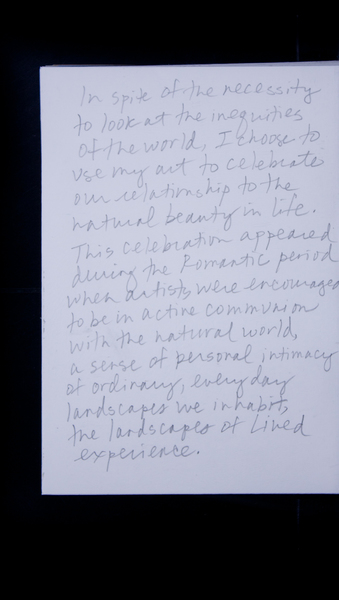 In spite of the necessity
to look at the inequities
of the world, I choose to
use my art to celebrate
our relationship to the
natural beauty in life.
This celebration appeared
during the Romantic period
when artists were encouraged
to be in active communion
with the natural world,
a sense of personal intimacy
of ordinary, everyday
landscapes we inhabit,
the landscapes of Lived
experience.